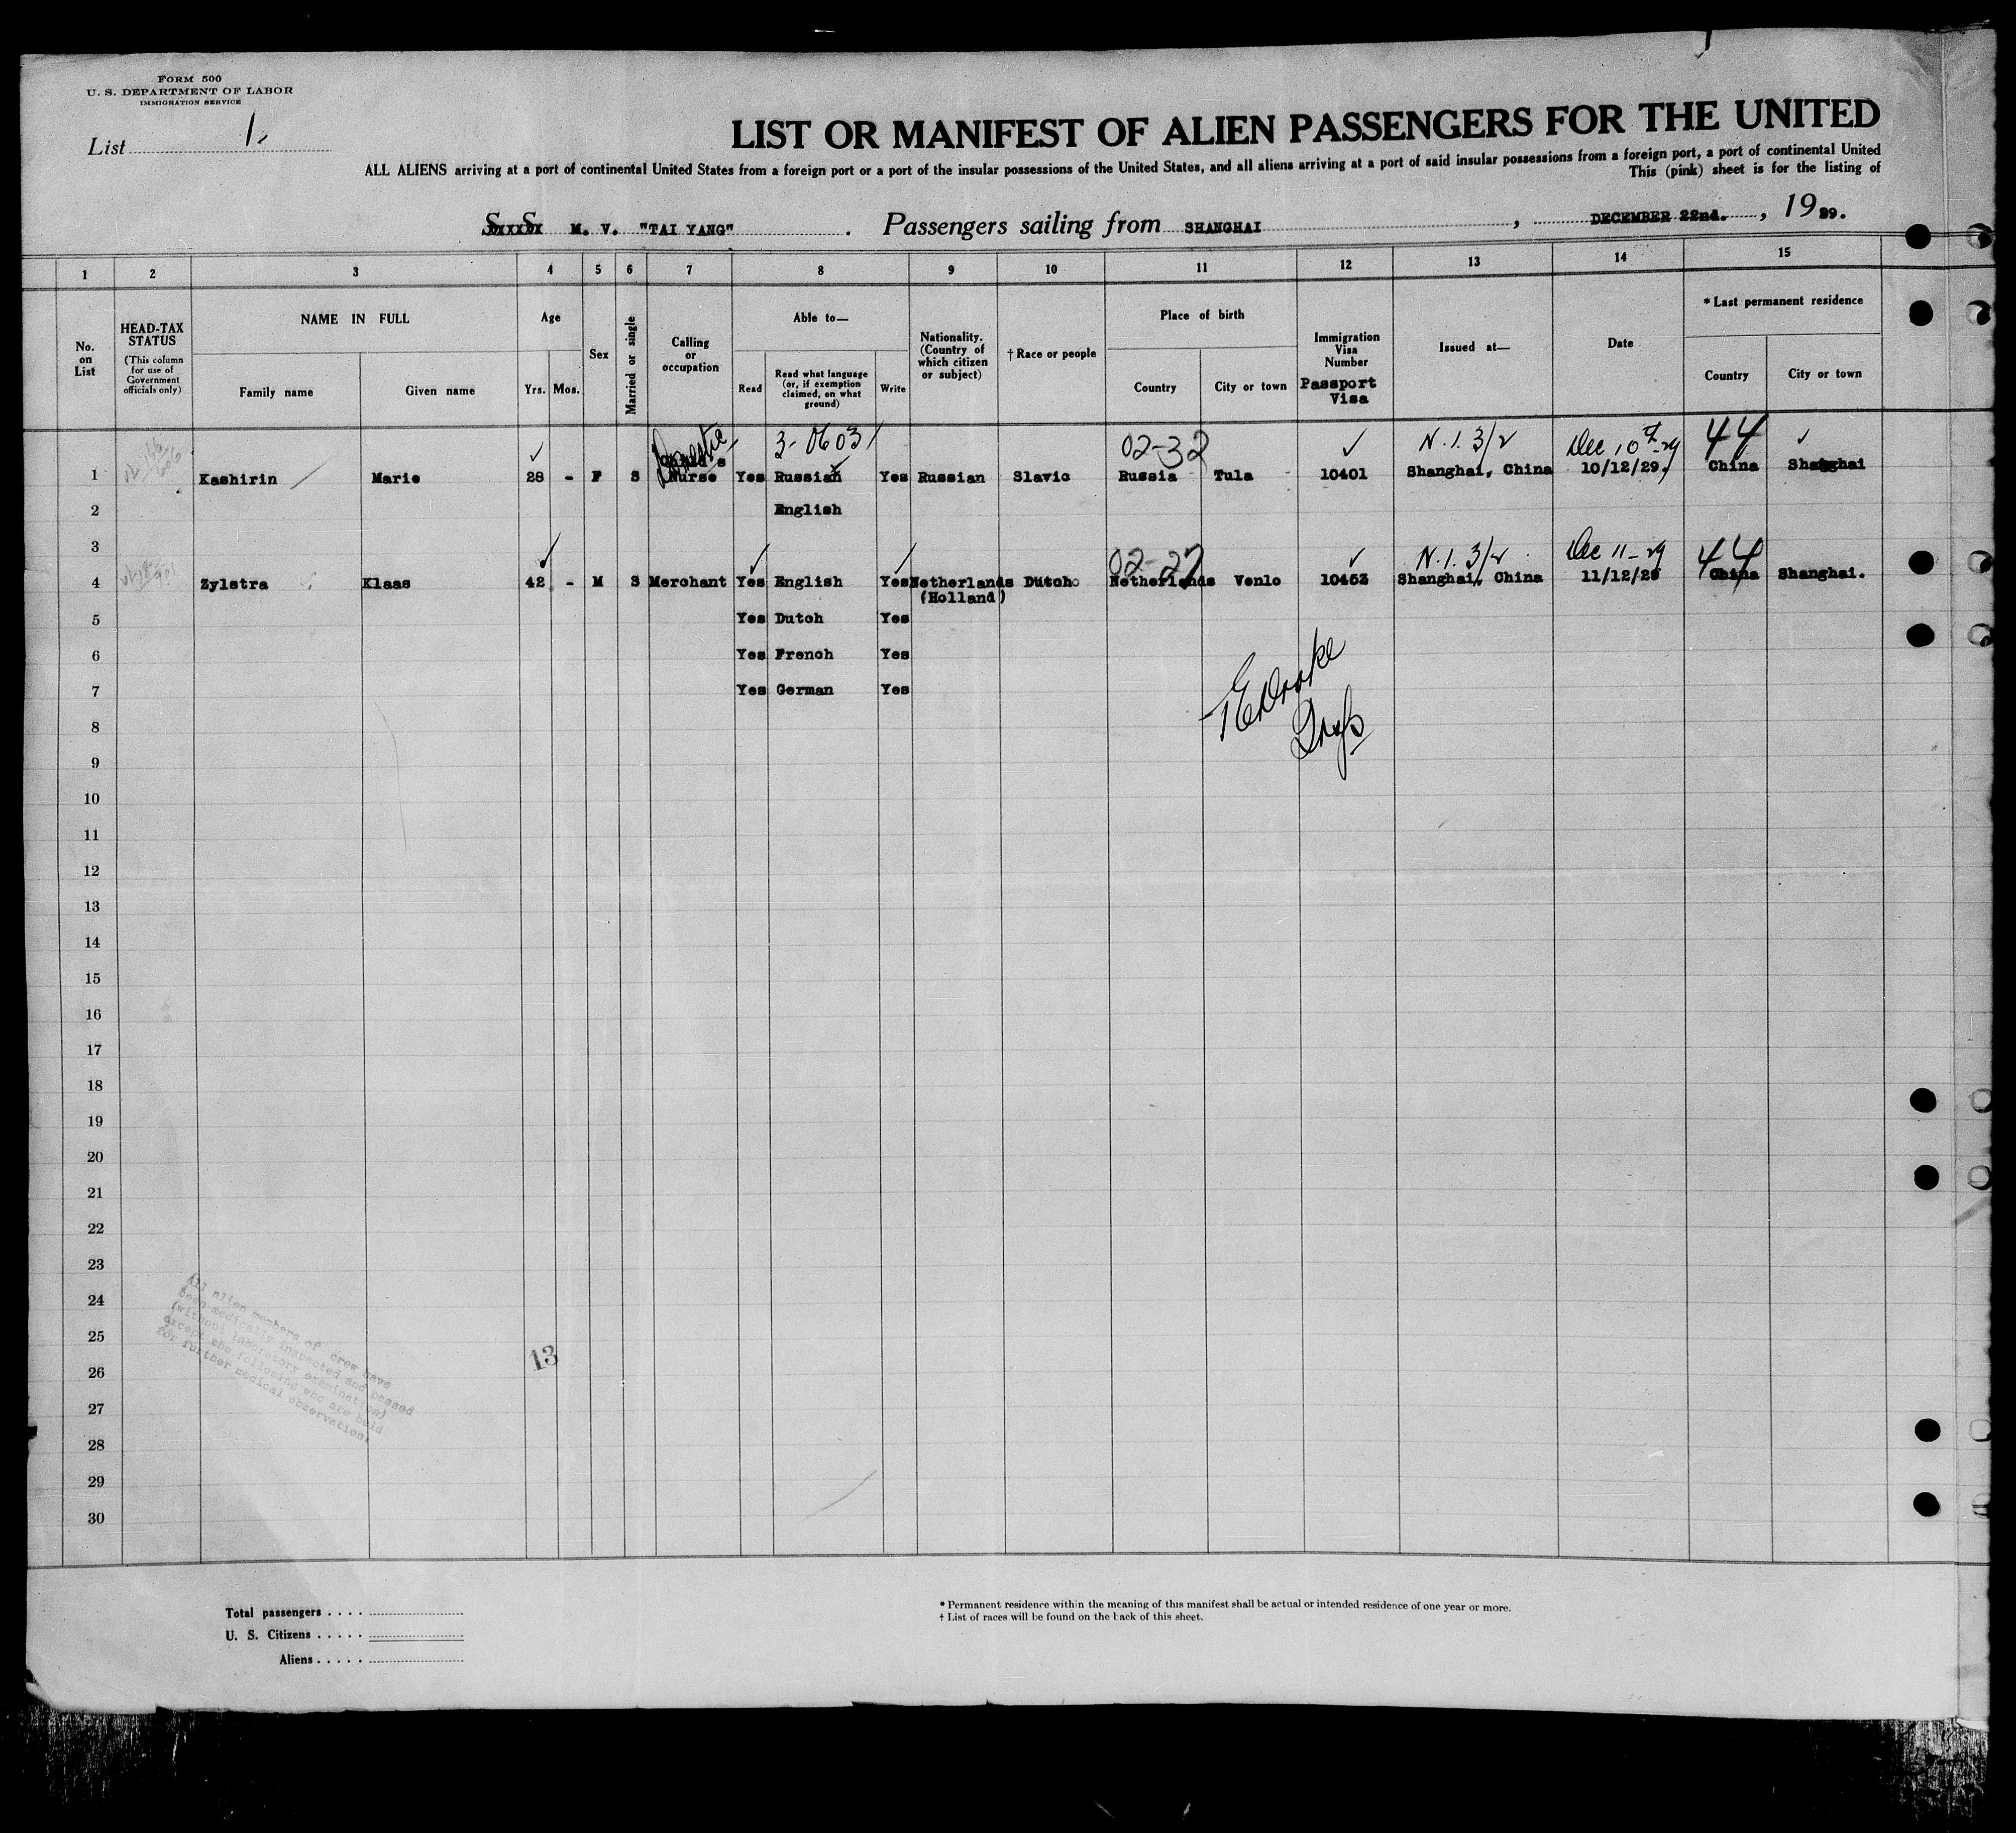 FORM 500
U. S. DEPARTMENT OF LABOR
IMMIGRATION SERVICE
List 1
LIST OR MANIFEST OF ALIEN PASSENGERS FOR THE UNITED
ALL ALIENS arriving at a port of continental United States from a foreign port or a port of the insular possessions of the United States, and all aliens arriving at a port of said insular possessions from a foreign port, a port of continental United
This (pink) sheet is for the listing of
M. V. "TAI YANG" . Passengers sailing from SHANGHAI , DECEMBER 22nd. , 19 29.
1 2 3 4 5 6 7 8 9 10 11 12 13 14 15
No. on List
HEAD-TAX STATUS
(This column for use of Government officials only)
NAME IN FULL
Family name Given name
Age
Yrs. Mos.
Sex
Married or single
Calling or occupation
Able to—
Read
Read what language (or, if exemption claimed, on what ground)
Write
Nationality. (Country of which citizen or subject)
† Race or people
Place of birth
Country City or town
Immigration Visa Number
Passport Visa
Issued at—
Date
* Last permanent residence
Country City or town
Domestic 3-0603 02-32 N.I. 3/2 Dec 10th-29 44
1 Kashirin Marie 28 - F S Nurse Yes Russian Yes Russian Slavic Russia Tula 10401 Shanghai, China 10/12/29. China Shanghai
2 English
3 02-27 N.I. 3/2 Dec 11-29 44
4 Zylstra Klaas 42 - M S Merchant Yes English Yes Netherlands Dutch Netherlands Venlo 10453 Shanghai, China 11/12/29 China Shanghai.
(Holland)
5 Yes Dutch Yes
6 Yes French Yes
7 Yes German Yes
8
9
10
11
12
13
14
15
16
17
18
19
20
21
22
23
24
25
26
27
28
29
30
13
All alien members of crew have
been medically inspected and passed
(without laboratory examination)
except the following who are held
for further medical observation.
Total passengers . . . .
U. S. Citizens . . . . .
Aliens . . . . .
* Permanent residence within the meaning of this manifest shall be actual or intended residence of one year or more.
† List of races will be found on the back of this sheet.